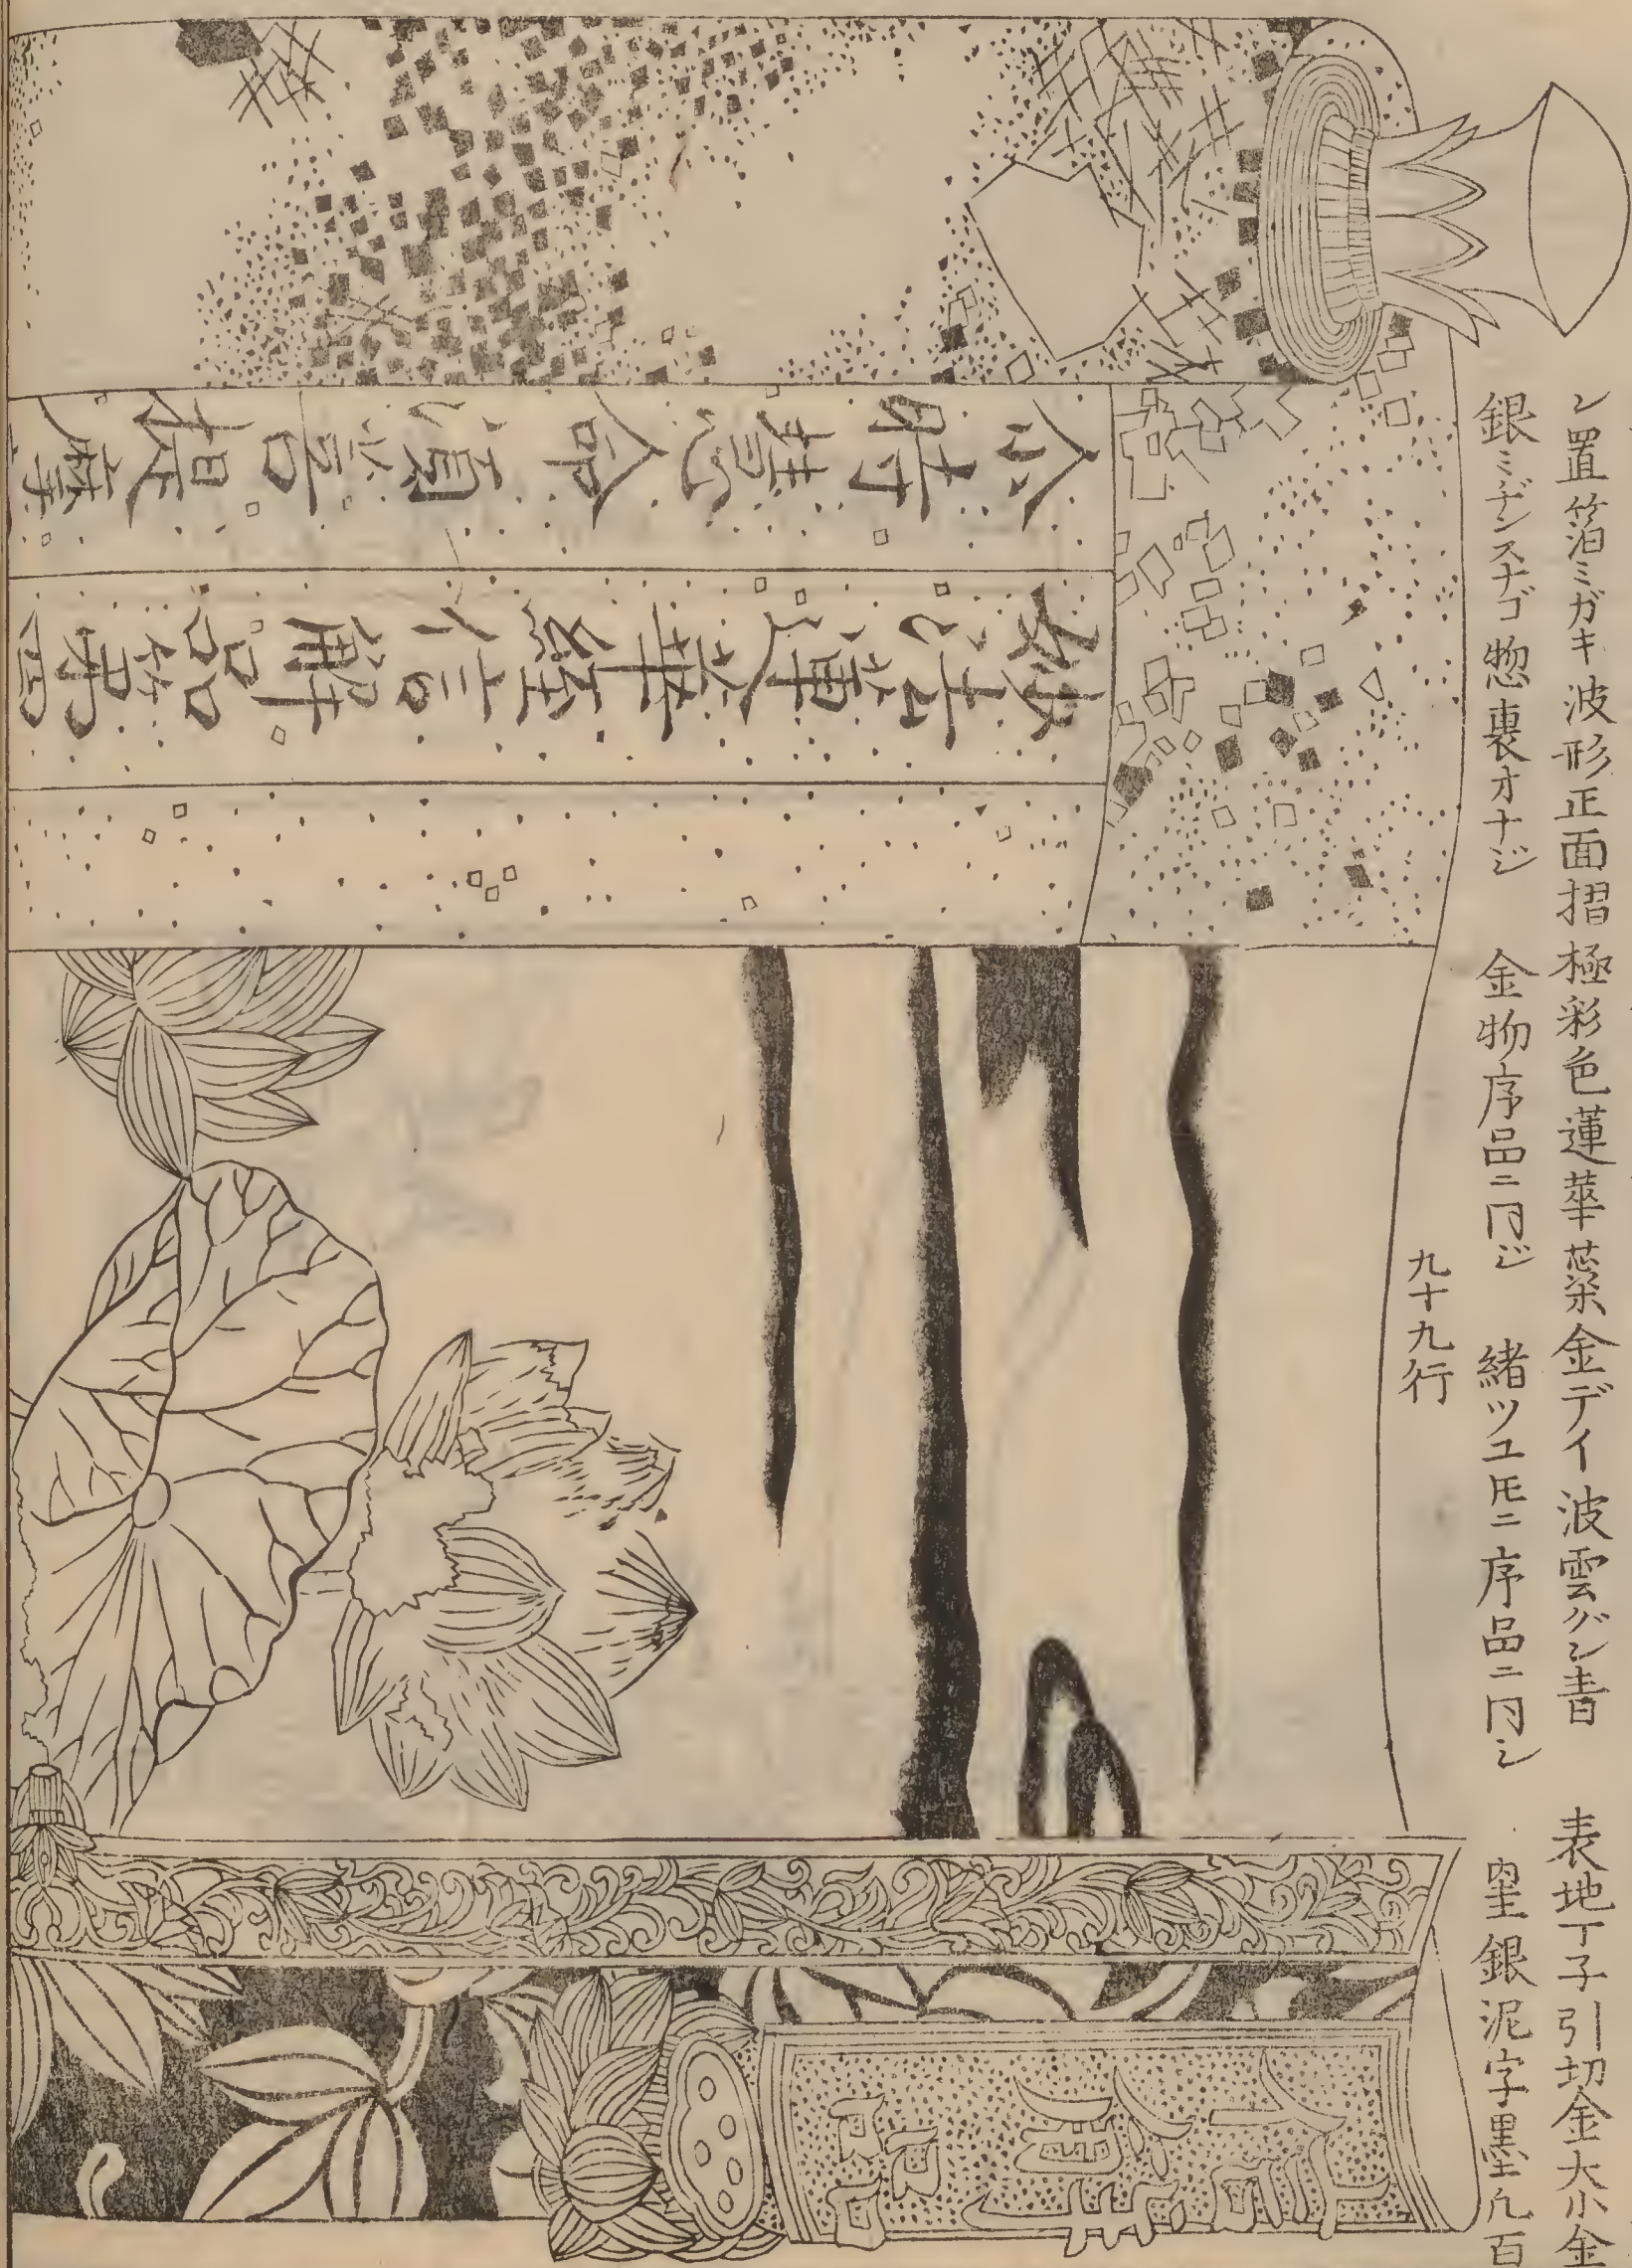 ン置箔ミガキ波形正面摺極彩色蓮華葉金デイ波雲グン青 表地丁子引切金大小金
銀ミヂンスナゴ惣裏オナジ 金物序品ニ同ジ 緒ツユ𪜈ニ序品ニ同シ 銀泥字墨凡百
九十九行
妙法蓮華經信解品第四
尒時慧命須菩提摩